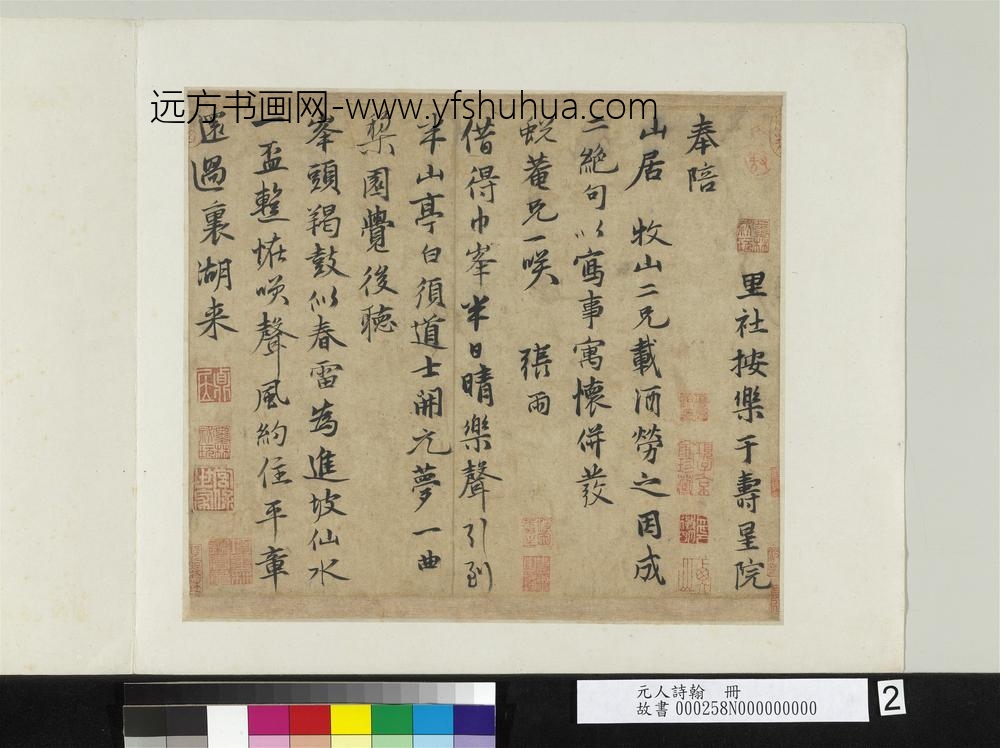 远方书画网-www.yfshuhua.com
里社按樂于壽星院
奉陪
山居　牧山二兄載酒勞之因成
二絕句以寫事寓懷併發
蛻菴兄一咲　張雨
借得巾峯半日晴樂聲引到
半山亭白須道士開元夢一曲
梨園覺後聽
峯頭羯鼓似春雷為進坡仙水
一盃整惟咲聲風約住平章
還過裏湖来
元人詩翰　冊
故書000258N000000000
2